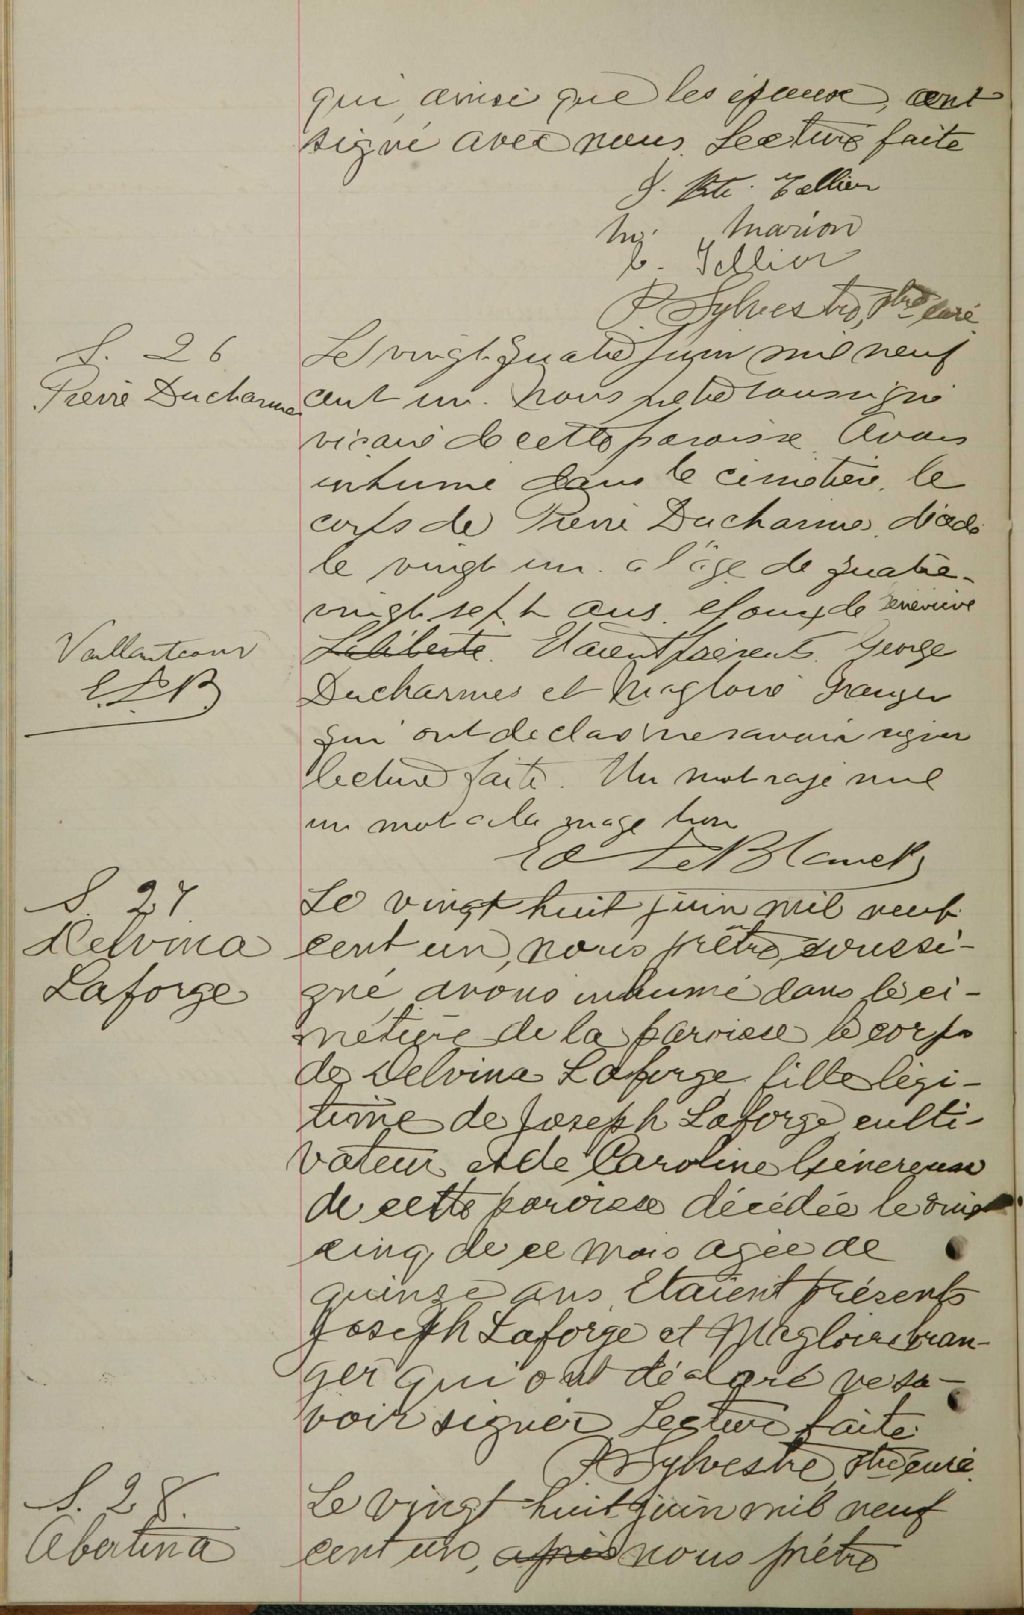 qui, ainsi que les époux, ont
signé avec nous. Lecture faite
J. Bte. Tellier
M. Marion
C. Tellier
P. Sylvestre, ptre curé
S. 26
Pierre Ducharme
Le vingt-quatre juin mil neuf
cent un. Nous prêtre soussigné
vicaire de cette paroisse. Avons
inhumé dans le cimetière, le
corps de Pierre Ducharme, décédé
le vingt un. a l'âge de quatre-
vingt sept ans. époux de Geneviève
Laliberté. Etaient présents. George
Vaillantcour
E. L. B.
Ducharmes et Magloire Granger
qui ont déclaré ne savoir signer
lecture faite. Un mot rayé nul
un mot a la marge bon
Ed LeBlanc Ptr
S. 27
Delvina
Laforge
Le vingt huit juin mil neuf
cent un, nous prêtre, soussi-
gné, avons inhumé dans le ci-
metière de la paroisse le corps
de Delvina Laforge, fille légi-
time de Joseph Laforge, culti-
vateur et de Caroline Généreux
de cette paroisse décédée le vingt
cinq de ce mois agée de
quinze ans. Etaient présents
Joseph Laforge et Magloire Gran-
ger qui ont déclaré ne sa-
voir signer. Lecture faite.
P. Sylvestre, ptre curé.
S. 28.
Abertina
Le vingt huit juin mil neuf
cent un, après nous prêtre